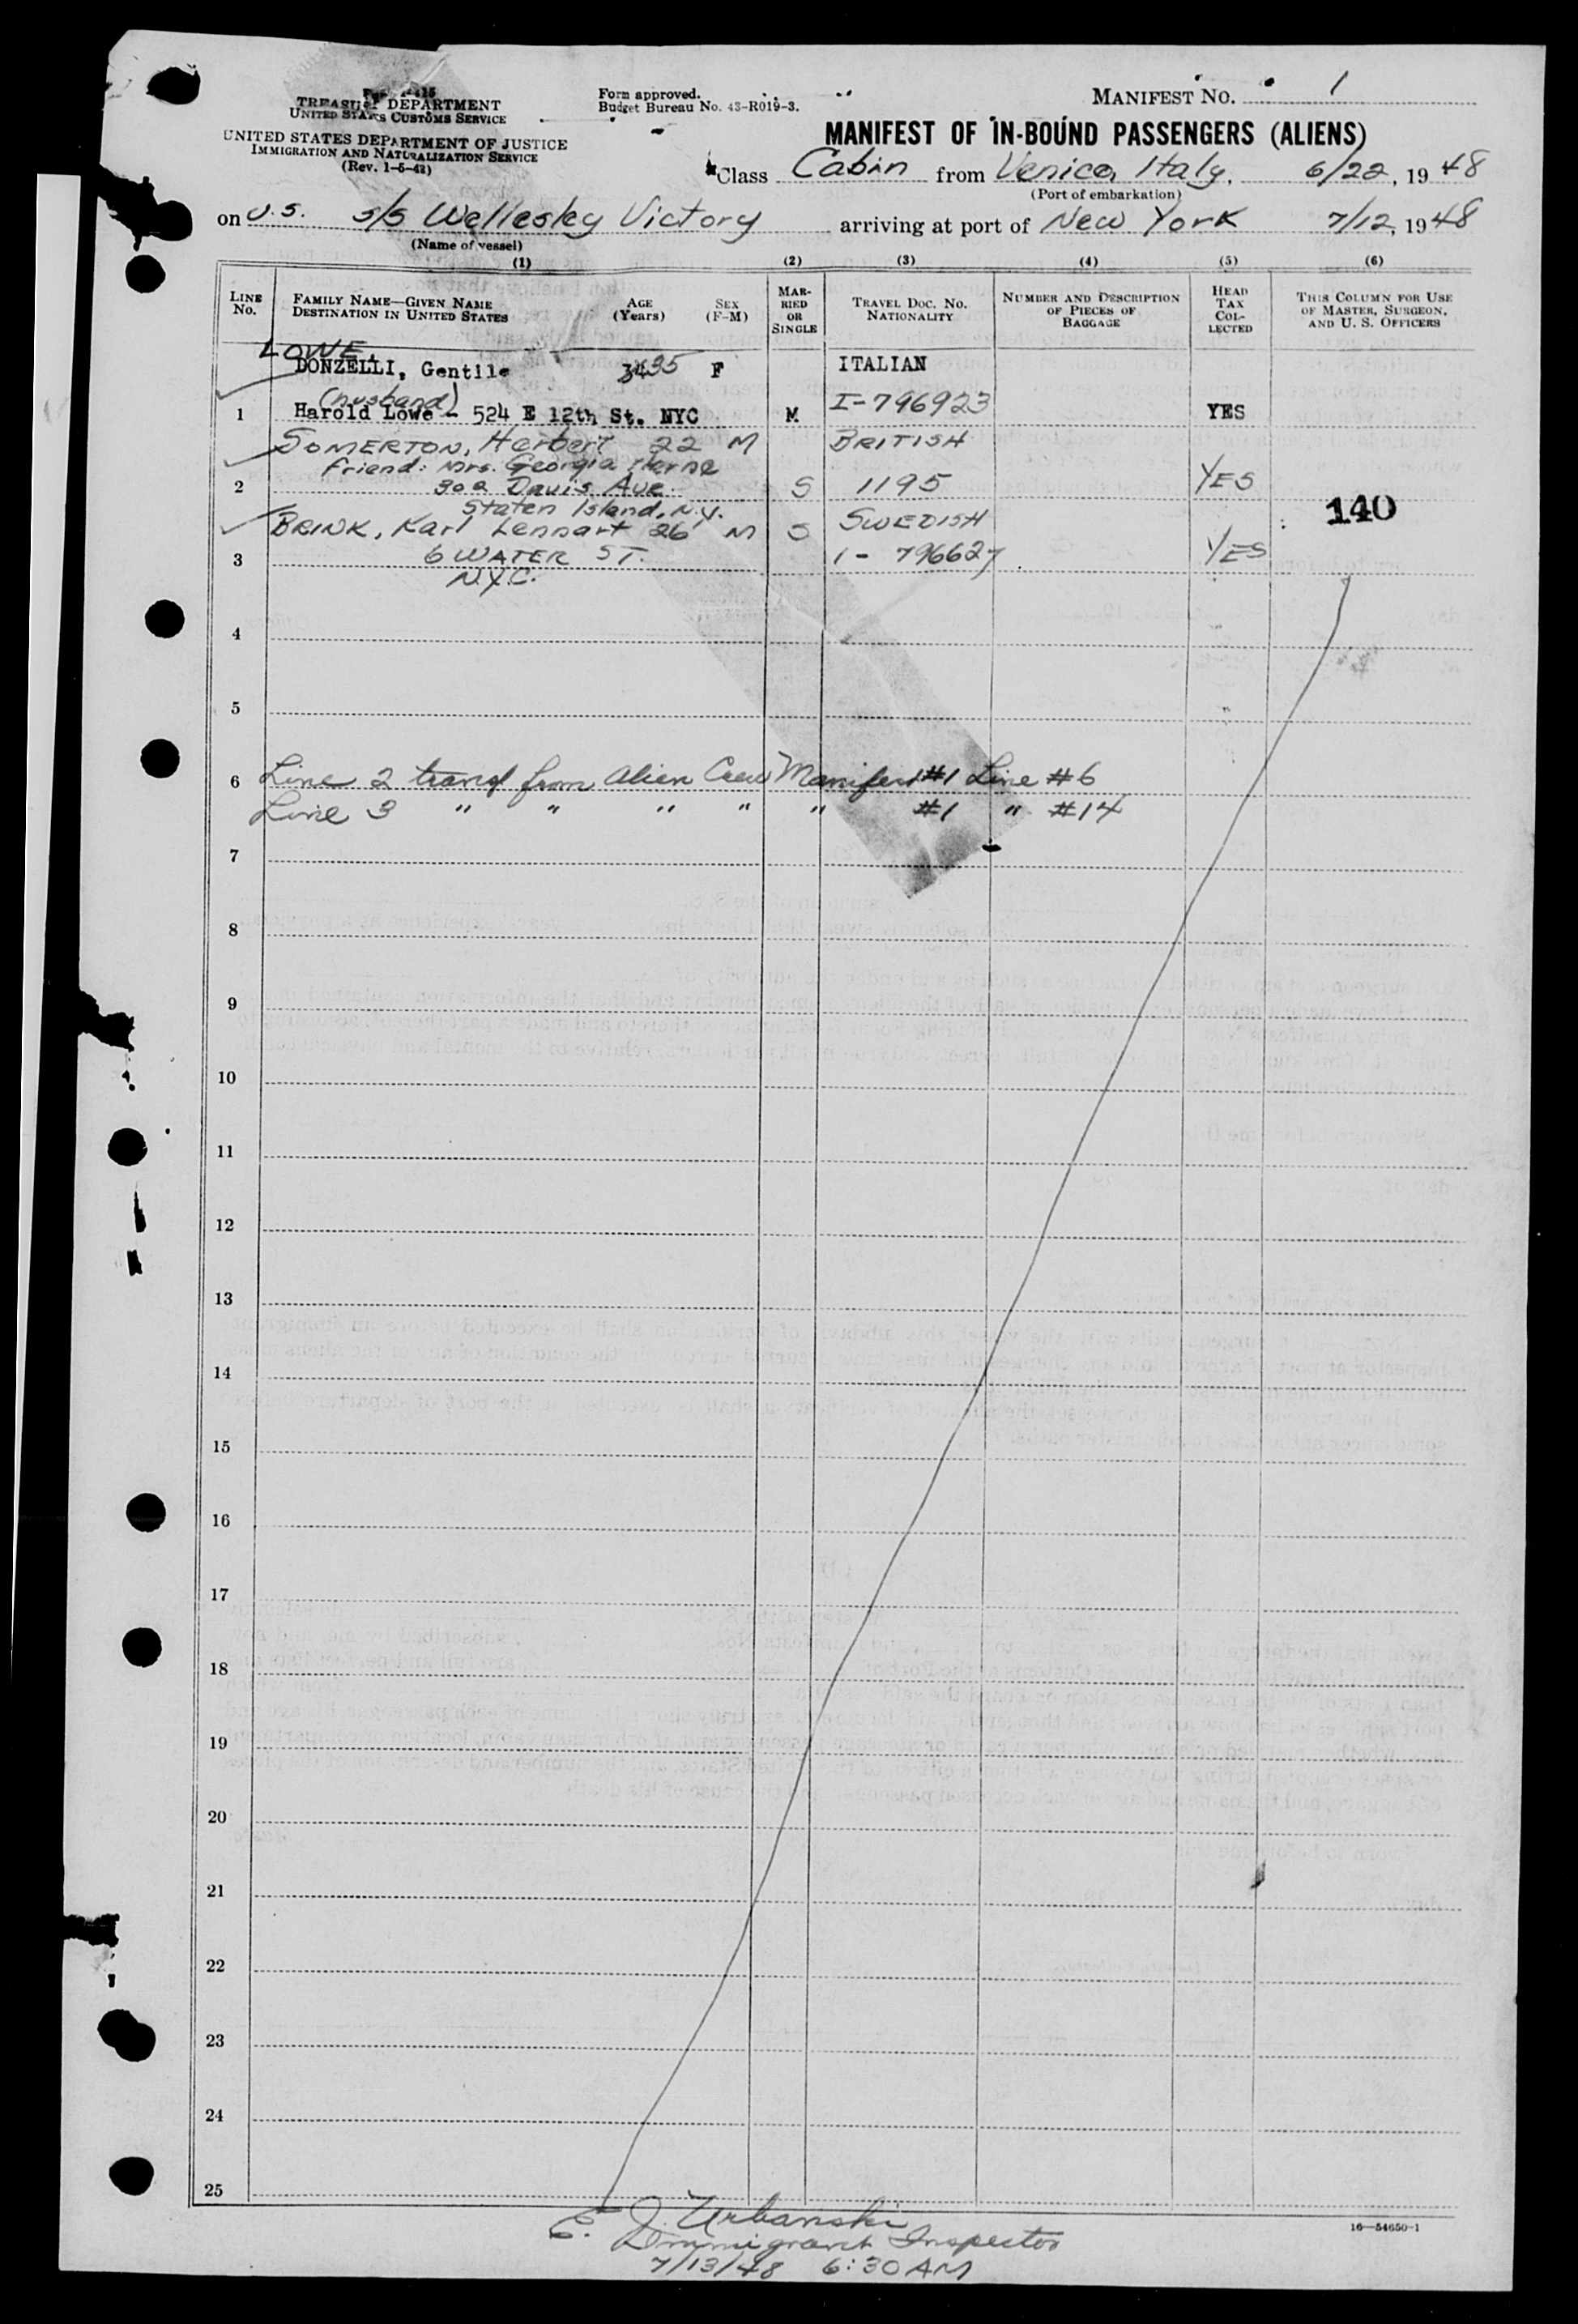 Form I-415
TREASURY DEPARTMENT
UNITED STATES CUSTOMS SERVICE
UNITED STATES DEPARTMENT OF JUSTICE
IMMIGRATION AND NATURALIZATION SERVICE
(Rev. 1-5-48)
Form approved.
Budget Bureau No. 43-R019-3.
MANIFEST NO. 1
MANIFEST OF IN-BOUND PASSENGERS (ALIENS)
Class Cabin from Venice, Italy, 6/22, 1948
(Port of embarkation)
on U.S. S/S Wellesley Victory arriving at port of New York 7/12, 1948
(Name of vessel)
(1) (2) (3) (4) (5) (6)
LINE No. FAMILY NAME—GIVEN NAME DESTINATION IN UNITED STATES AGE (Years) SEX (F-M) MARRIED OR SINGLE TRAVEL DOC. NO. NATIONALITY NUMBER AND DESCRIPTION OF PIECES OF BAGGAGE HEAD TAX COLLECTED THIS COLUMN FOR USE OF MASTER, SURGEON, AND U. S. OFFICERS
LOWE,
DONZELLI, Gentile 34 35 F ITALIAN
(husband)
1 Harold Lowe - 524 E 12th St. NYC M I-796923 YES
SOMERTON, Herbert 22 M BRITISH
Friend: Mrs. Georgia Herne
2 302 Davis Ave. S 1195 YES
Staten Island, N.Y.
140
BRINK, Karl Lennart 26 M S SWEDISH
3 6 WATER ST. 1- 796627 YES
N.Y.C.
4
5
6 Line 2 transf from Alien Crew Manifest #1 Line #6
Line 3 " " " " " #1 " #14
7
8
9
10
11
12
13
14
15
16
17
18
19
20
21
22
23
24
25
E. J. Urbanski
Immigrant Inspector
7/13/48 6:30 AM
16—54650-1